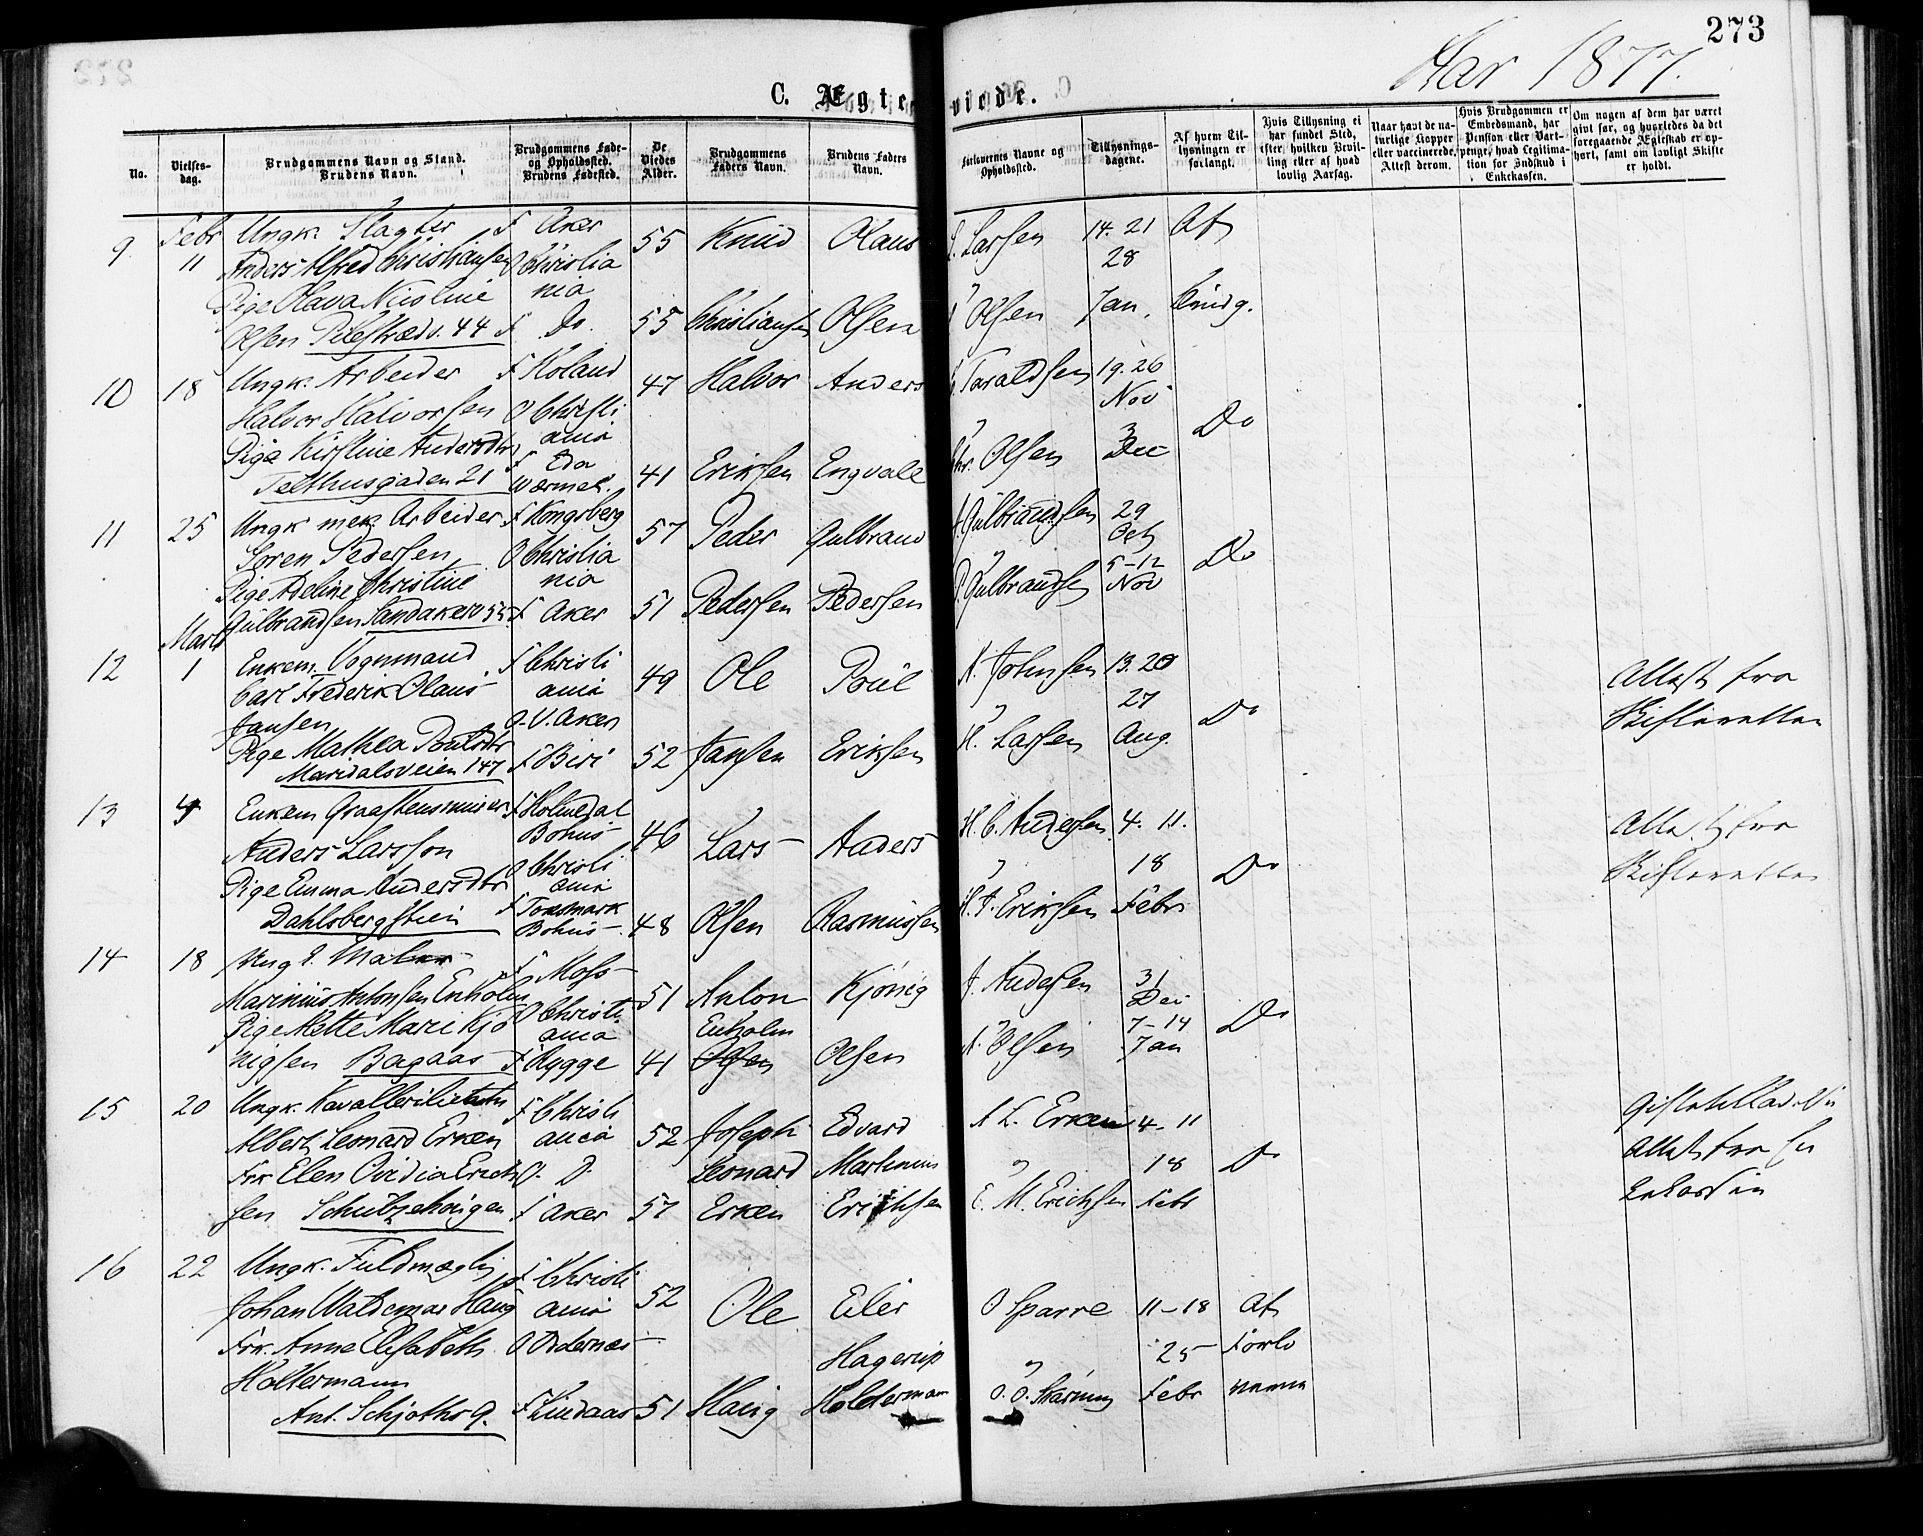 273
Aar 1877.
C. Ægteviede.
No.
Vielses-
dag.
Brudgommens Navn og Stand.
Brudens Navn.
Brudgommens Føde-
og Opholdssted.
Brudens Fødested.
De
Viedes
Alder.
Brudgommens
Faders Navn.
Brudens Faders
Navn.
Forlovernes Navne og
Opholdssted.
Tillysnings-
dagene.
Af hvem Til-
lysningen er
forlangt.
Hvis Tillysning ei
har fundet Sted,
efter hvilken Bevil-
ling eller af hvad
lovlig Aarsag.
Naar havt de na-
turlige Kopper
eller vaccinerede,
Attest derom.
Hvis Brudgommen er
Embedsmand, har
Pension eller Vart-
penge, hvad Legitima-
tion for Indskud i
Enkekassen.
Om nogen af dem har været
givt før, og hvorledes da det
foregaaende Ægteskab er op-
hørt, samt om lovligt Skifte
er holdt.
9 Febr Ungk. Slagter F Aker 55 Knud Olaus Larsen 14. 21 Af
11 Anders Alfred Christiansen O Christia 28
Pige Olava Nicoline nia
Olsen Pilestræd. 44 F Do. 55 Christiansen Olsen Olsen Jan. Brudg.
10 18 Ungk. Arbeider F Holand 47 Halvor Anders Taraldsen 19. 26
Halvor Halvorsen O Christi Nov
Pige Kirstine Andersdtr ania 3 Do
F Eda
Telthusgaden 21 Wærmel. 41 Eriksen Engvald Chr. Olsen Dec
11 25 Ungk mek Arbeider F Kongsberg 57 Peder Gulbrand Gulbrandsen 29
Søren Pedersen O Christia Oct
Pige Adeline Christine nia 5-12 Do
Gulbrandsen Sandakerv 55 F Aker 51 Pedersen Pedersen Gulbrandsen Nov
Marts
12 1 Enkem. Vognmand F Christi 49 Ole Poul N. Johnsen 13. 20 Attest fra
Carl Frederik Olaus ania 27 Skifteretten
Jansen O. V. Aker Do
Pige Mathea Poulsdtr F Biri 52 Jansen Eriksen H. Larsen Aug.
Maridalsveien 147
13 4 Enkem Graastensminer F Holmedal 46 Lars Anders H. C. Andersen 4. 11. Attest fra
Bohus
Anders Larsson O Christi 18 Do Skifteretten
Pige Emma Andersdtr ania
F Torsmark
Dahlsbergstien Bohus 48 Olsen Rasmussen H. A. Eriksen Febr
14 18 Ungk. Maler F Moss 51 Anton Kjönig J. Andersen 31
Marinius Antonsen Enholm O Christi Dec
Pige Mette Marie Kjö ania Enholm 7-14 Do
nigsen Bagaas F Rygge 41 Olsen Olsen Olsen Jan
15 20 Ungk. Kavallerilieutn F Christi 52 Joseph Edvard A L. Erken 4. 11
Albert Leonard Erken ania
Frk Elen Ovidia Erich O. D. Leonard Martinius 18 D Attest fra
sen Schultzehaugen F Aker 57 Erken Erichsen C. M. Erichsen Febr
16 22 Ungk. Fuldmægtig F Christi 52 Ole Eiler O Sparre 11-18 Af
Johan Waldemar Haug ania
Frk. Anne Elisabeth O Odernæs Hagerup 25 Forlo
Holtermann
Ant. Schjøths 9. F Lindaas 51 Haug Holdermann Febr verne